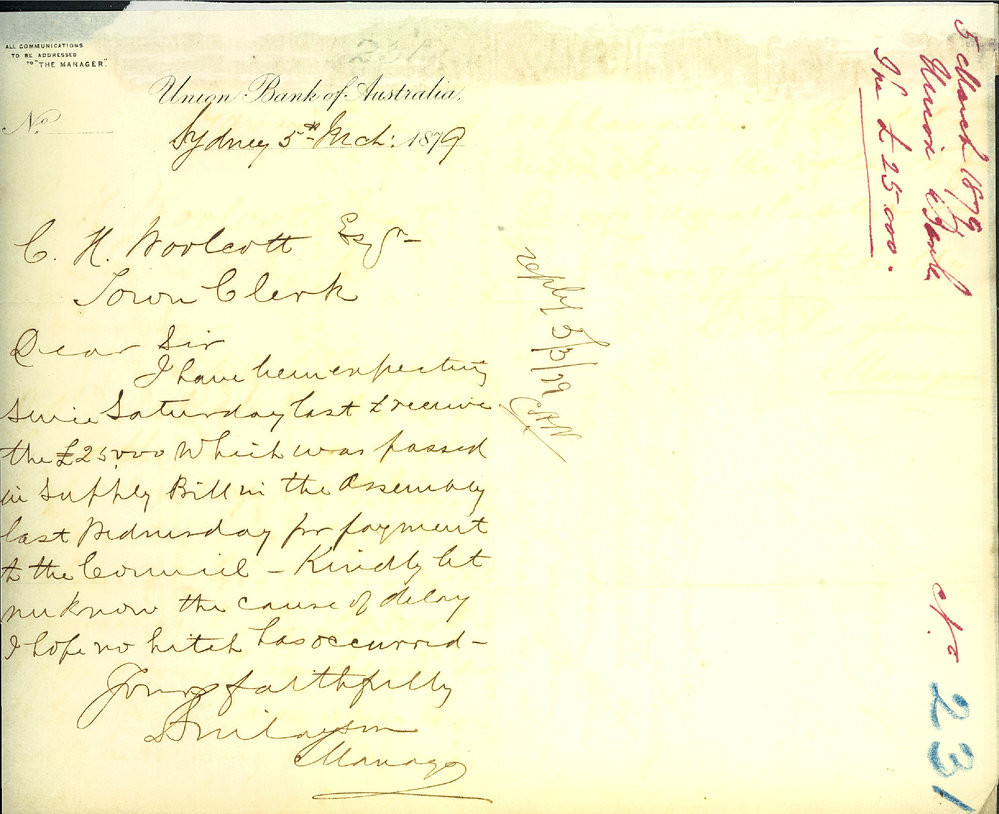 ALL COMMUNICATIONS
TO BE ADDRESSED
TO "THE MANAGER".
Union Bank of Australia.
No.
Sydney 5th Mch: 1879
C. H. Woolcott Esqr
Town Clerk
Dear Sir
I have been expecting
since Saturday last to receive
the £25,000 which was passed
in Supply Bill in the Assembly
last Wednesday for payment
to the Council – Kindly let
me know the cause of delay
I hope no hitch has occurred –
Yours faithfully
Manager
reply 5/3/79
CHW
5 March 1879
Union Bank
£25000.
No 231